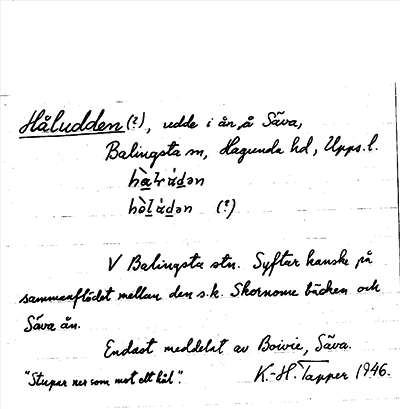 Håludden (?), udde i ån å Säva,
Balingsta sn, Hagunda hd, Upps. l.
V Balingsta stn. Syftar kanske på
sammanflödet mellan den s.k. Skornome bäcken och
Säva ån.
Endast meddelat av Boivie, Säva.
"Stupar ner som mot ett hål".
K.-H. Tapper 1946.